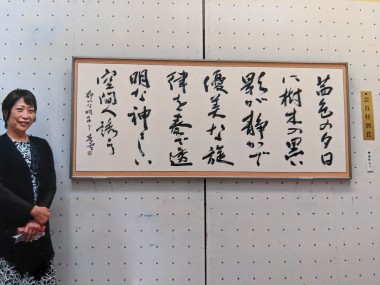 茜色の夕日
に樹木の黒い
影が静かで
優美な旋
律を奏で透
明な神々しい
空間へ誘う